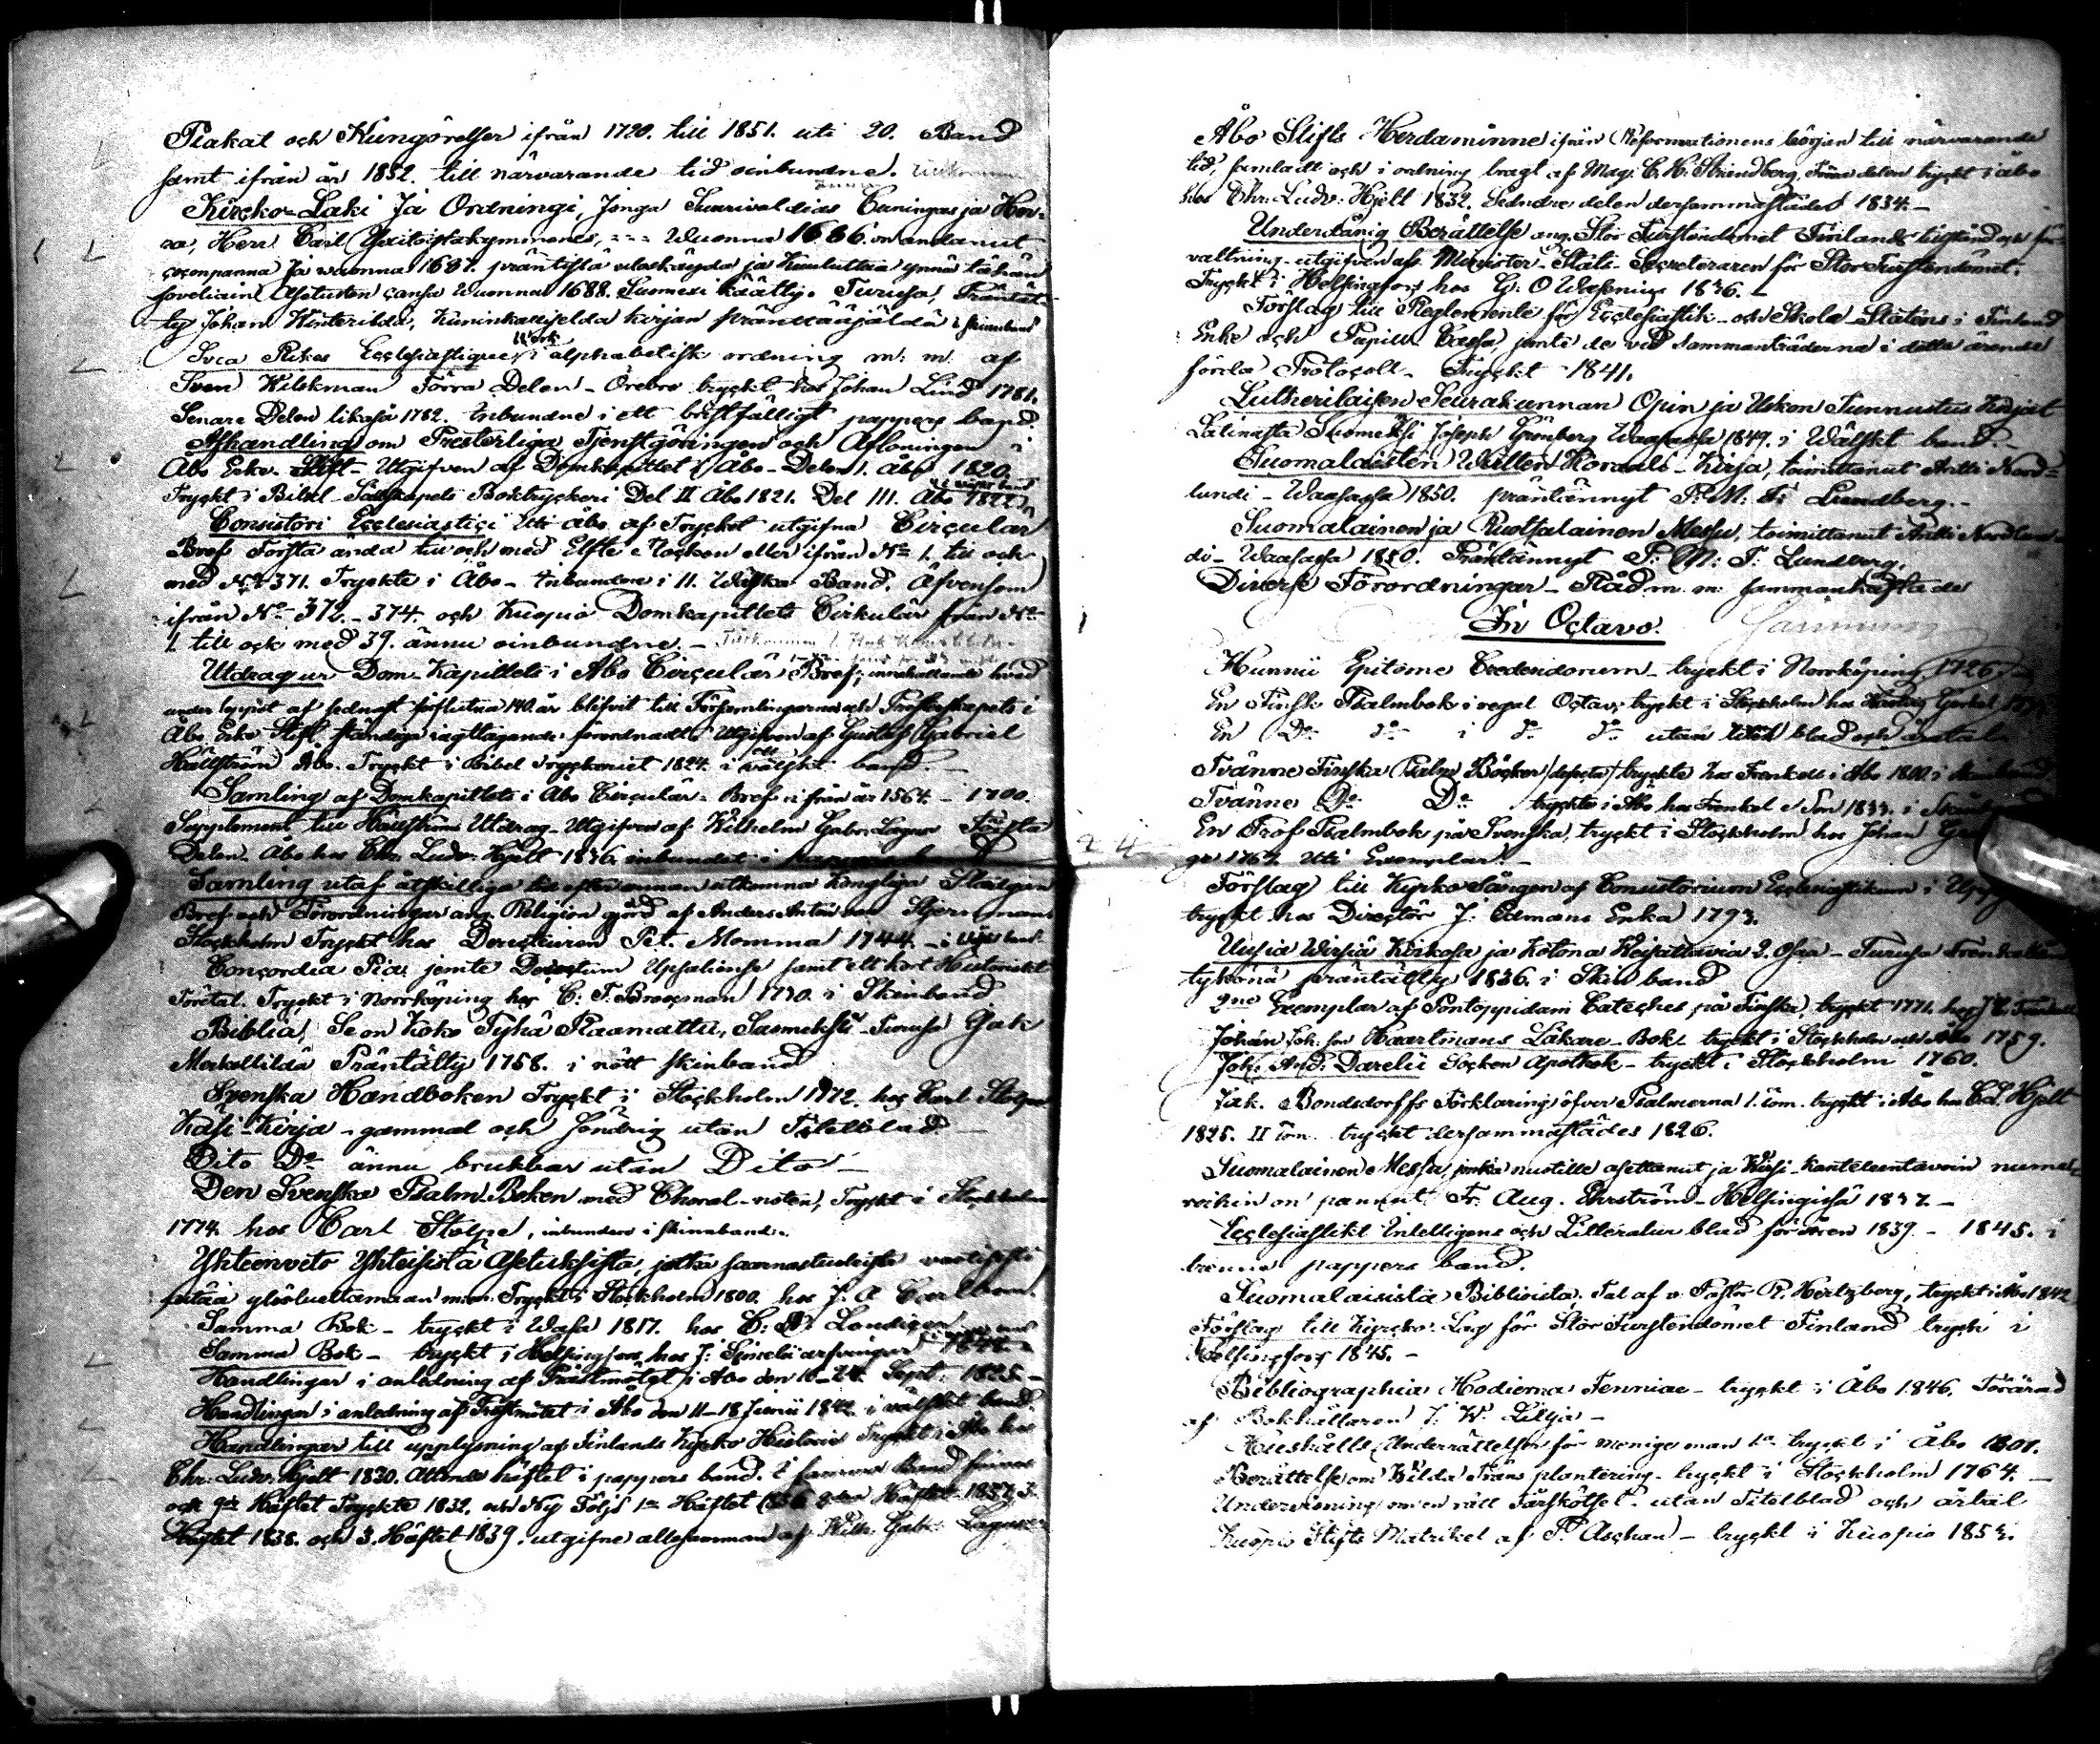 Plakat och Kungörelser ifrån 1720. till 1851. uti 20. Band
samt ifrån år 1852. till närvarande tid oinbundne.
Kircko-Laki Ja Ordningi, Jonga Suurivaldias Cuningas ja Her-
ra, Herr Carl Yxitoistakymmenes, Wuonna 1686. on andanut
coconpanna Ja wuonna 1687. präntistä uloskäydä ja Kuuluttaa ynnä tähän
soveliain Asetusten cansa Wuonna 1688. Suomexi käätty. Turusa, Präntät-
ty Johan Winterilda, Kuninkaaliselda Kirjan präntääjäldä i skinnband
Svea Rikes Ecclesiastique Werk i alphabetisk ordning m: m. af
Sven Wilskman Förra Delen - Örebro tryckt hos Johan Lind 1781.
Senare Delen likaså 1782. Inbundne i ett bristfälligt pappers band.
Afhandling om Presterliga Tjenstgöringen och Aflöningen i
Åbo Erke-Stift - Utgifven af Domkapitlet i Åbo - Delen 1. Åbo 1820.
Tryckt i Bibel-Sällskapets Boktryckeri Del II Åbo 1821. Del III. Åbo 1822
Consistori Ecclesiastici uti Åbo af Trycket utgifna Circulär
Bref Första ända till och med Elfte Flocken eller ifrån No 1. till och
med No 371. Tryckte i Åbo - Inbundne i 11. Wälska Band. Äfvensom
ifrån No 372. - 374. och Kuopio Domkapitlets Cirkulär från No
1. till och med 39. ännu oinbundne. -
Utdrag ur Dom-Kapitlets i Åbo Circulär Bref; innehållande hvad
under loppet af sednast förflutna 140 år blifvit till Församlingarna och Presterskapets i
Åbo Erke Stift ständiga iagttagande förordnadt. Utgifven af Gustaf Gabriel
Hällström Åbo. Tryckt i Bibel Tryckeriet 1824. i ett wälskt band -
Samling af Domkapitlets i Åbo Circulär-Bref ifrån år 1564. - 1700.
Supplement till Hällströms Utdrag - Utgifven af Wilhelm Gabr. Lagus Första
Delen. Åbo hos Chr. Ludv. Hjelt 1836 inbundet i
Samling utaf åtskilliga tid efter annan utkomna Kongliga Stadgar
Bref och Förordningar ang. Religion gjord af Anders Anton von Stjernman
Stockholm Tryckt hos Directeuren Pet. Momma 1744. - i Wälskt band
Concordia Pia, jemte Decretum Upsaliense samt ett kort Historiskt
Företal. Tryckt i Norrköping hos C: F. Broocman 1730. i Skinband
Biblia, Se on Koko Pyhä Raamattu, Suomeksi - Turusa Jak
Merkellildä Präntätty 1758. i nött skinband
Svenska Handboken Tryckt i Stockholm 1772. hos Carl Stolpe
Käsi-Kirja - gammal och söndrig utan Titelblad -
Dito Do ännu brukbar utan Dito -
Den Svenska Psalm-Boken med Choral-noten, Tryckt i Stockholm
1774. hos Carl Stolpe, inbunden i skinnband.
Yhteenveto Yhteisistä Asetuksista, jotka saarnastuolista
pitää ylösluettaman m.m. Tryckt i Stockholm 1800. hos J. A Carlbom.
Samma Bok - tryckt i Wasa 1817. hos C: A. Londicer
Samma Bok - tryckt i Helsingfors hos J: Simelii arfvingar
Handlingar i anledning af Prästmötet i Åbo den 16-24. Sept. 1825. -
Handlingar i anledning af Prestmötet i Åbo den 11-18 Junii 1842 i wälskt band
Handlingar till upplysning af Finlands Kyrko Historie Tryckt i Åbo hos
Chr. Ludv. Hjelt 1830. Åttonde häftet i pappers band. I samma Band finnes
ock 9de Häftet Tryckte 1832. och Ny Följd 1a Häftet 1836 2dra Häftet 1837 3-
Häftet 1838. och 3. Häftet 1839. utgifne allesamman af Wilh. Gabr. Lagus
Åbo Stifts Herdaminne ifrån Reformationens början till närvarande
tid, samladt och i ordning bragt af Mag. C. H. Strandberg, Förra delen tryckt i Åbo
hos Chr. Ludv. Hjelt 1832. Sednare delen dersammastädes 1834. -
Underdånig Berättelse ang. Stor Furstendömet Finlands tillstånd och för-
valtning - utgifven af Minister-Stats-Secreteraren för StorFurstendömet.
Tryckt i Helsingfors hos G: O Wasenius 1836. -
Förslag till Reglemente för Ecclesiastik- och Skole-Statens i Finland
Enke och Pupill Cassa, jemte de vid Sammanträderna i detta ärende
förda Protocoll - Tryckt 1841.
Lutherilaisen Seurakunnan Opin ja Uskon Tunnustus Kirjat
Latinasta Suomeksi Joseph Grönberg Waasassa 1849. i Wälskt band. -
Suomalaisten Wirtten Koraali-Kirja, toimittanut Antti Nord-
lundi - Waasassa 1850. präntännyt P. M: F: Lundberg. -
Suomalainen ja Ruotsalainen Messu, toimittanut Antti Nordlun-
di - Waasassa 1850. Präntännyt P: M: F: Lundberg.
Diverse Förordningar - Råd m. m. sammanhäftade
In Octavo.
Hunnii Epitome Credendorum - tryckt i Norrköping 1726. -
En Finsk Psalmbok i regal Octav, tryckt i Stockholm hos
En Do do i do do utan titel blad och årstal
Tvänne Finska Psalm Böcker (defecta) tryckte hos Frenkell i Åbo 1800. i
Tvänne Do Do tryckte i Åbo hos Frenkel & Son 1833. i
En Prof Psalmbok på Svenska, tryckt i Stockholm hos Johan
1764. Uti Exemplar. -
Förslag till Kyrko Sången af Consistorium Ecclesiastikum i
tryckt hos Director J: Edmans Enka 1793.
Uusia Wirsiä Kirkosa ja Kotona Weisattawia 2. Osaa - Turusa Frenckellin
tykönä präntätty 1836. i Skinband
2ne Exemplar af Pontoppidani Cateches på Finska, tryckt 1771. hos
Johan Joh. son Haartmans Läkare-Bok tryckt i Stockholm och Åbo 1759.
Joh: And: Darelii Socken Apothek - tryckt i Stockholm 1760.
Jak. Bonsdorffs Förklaring öfver Psalmerna 1. tom. tryckt i Åbo hos C. L. Hjelt
1825. II tom. tryckt dersammastädes 1826.
Suomalainen Messu, jonka nuotille asettanut ja Käsi-Kanteleentavoin nume-
roihin on pannut Fr. Aug. Ehrström - Helsingissä 1837. -
Ecclesiastikt Intelligens och Litteratur blad för åren 1839 - 1845. i
trenne pappers band.
Suomalaisista Biblioista, Tal af v. Pastor R. Hertzberg, tryckt i Åbo 1842
Förslag till Kyrcko-Lag för Stor Furstendömet Finland tryckt i
Helsingfors 1845. -
Bibliographia Hodierna Fenniae - tryckt i Åbo 1846. Förärad
af Bokhållaren J: W. Lillja -
Hushålls Underrättelser för menige man 1a tryckt i Åbo 1801.
Berättelse om Wilda Träns plantering - tryckt i Stockholm 1764. -
Undervisning om en rätt Fårskötsel - utan Titelblad och årtal
Kuopio Stifts Matrikel af P. Aschan - tryckt i Kuopio 1853.